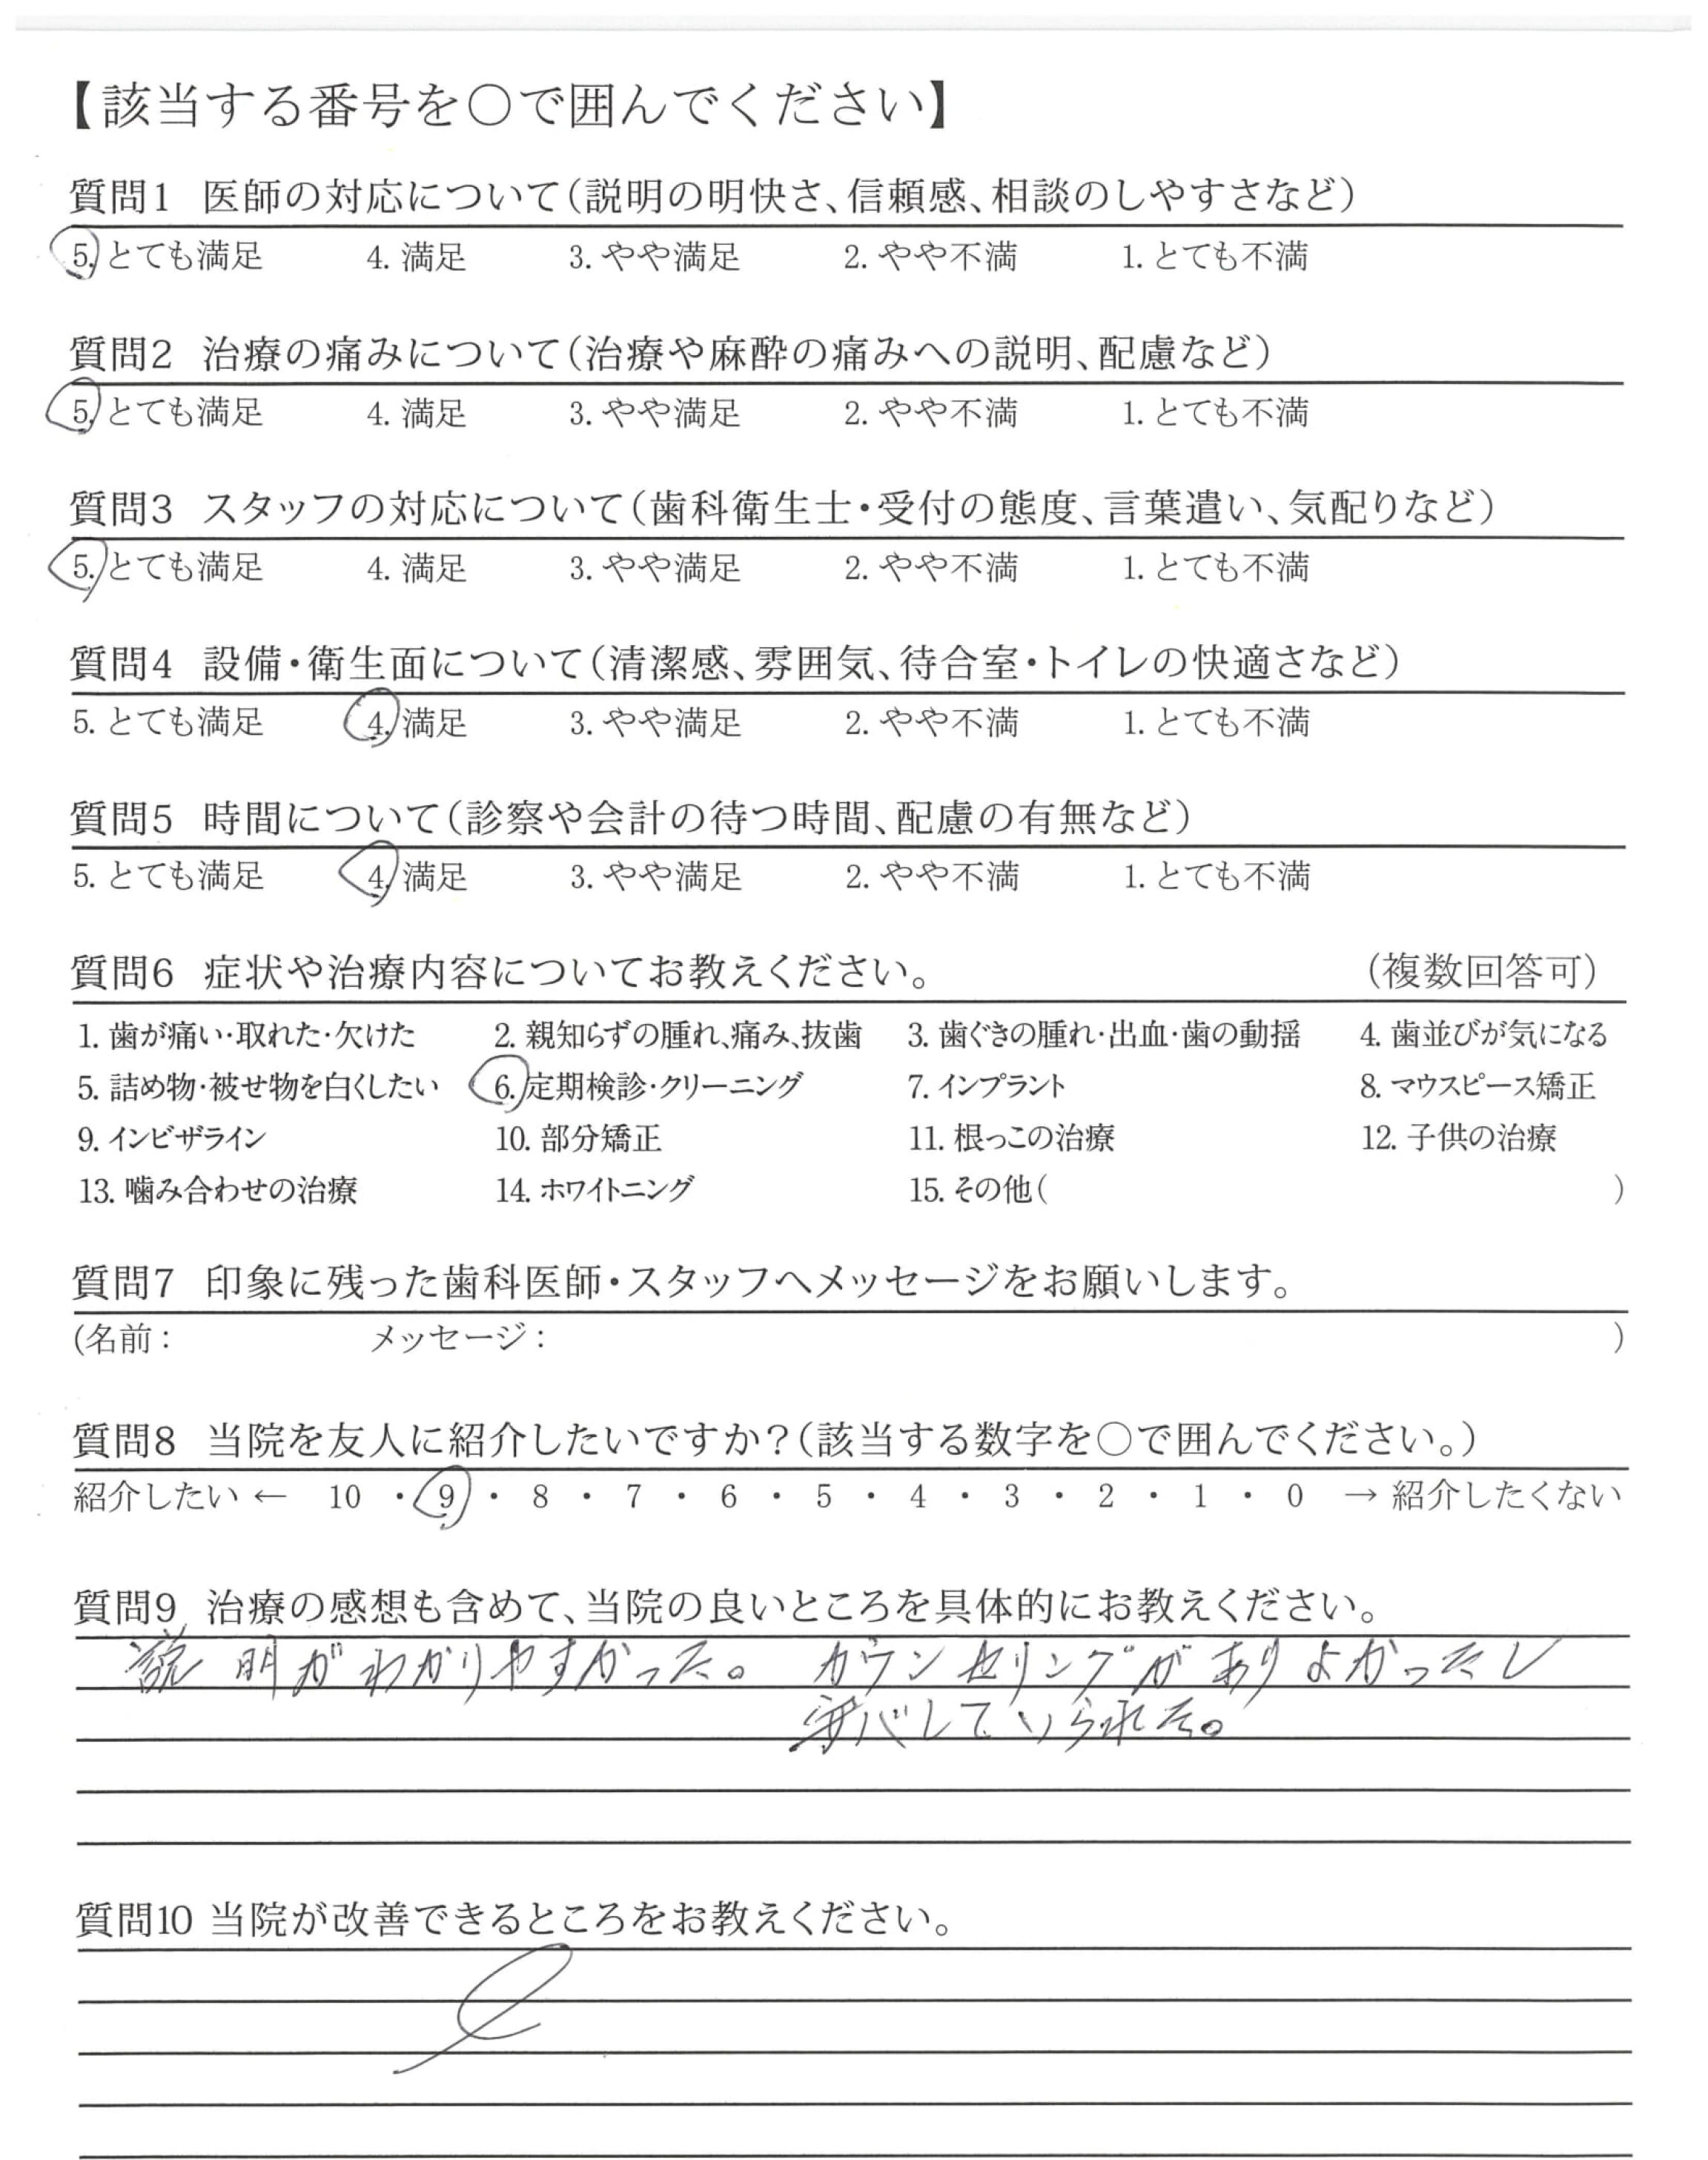 【該当する番号を○で囲んでください】
質問1 医師の対応について(説明の明快さ、信頼感、相談のしやすさなど)
5. とても満足 4. 満足 3. やや満足 2. やや不満 1. とても不満
質問2 治療の痛みについて(治療や麻酔の痛みへの説明、配慮など)
5. とても満足 4. 満足 3. やや満足 2. やや不満 1. とても不満
質問3 スタッフの対応について(歯科衛生士・受付の態度、言葉遣い、気配りなど)
5. とても満足 4. 満足 3. やや満足 2. やや不満 1. とても不満
質問4 設備・衛生面について(清潔感、雰囲気、待合室・トイレの快適さなど)
5. とても満足 4. 満足 3. やや満足 2. やや不満 1. とても不満
質問5 時間について(診察や会計の待つ時間、配慮の有無など)
5. とても満足 4. 満足 3. やや満足 2. やや不満 1. とても不満
質問6 症状や治療内容についてお教えください。 (複数回答可)
1. 歯が痛い・取れた・欠けた 2. 親知らずの腫れ、痛み、抜歯 3. 歯ぐきの腫れ・出血・歯の動揺 4. 歯並びが気になる
5. 詰め物・被せ物を白くしたい 6. 定期検診・クリーニング 7. インプラント 8. マウスピース矯正
9. インビザライン 10. 部分矯正 11. 根っこの治療 12. 子供の治療
13. 噛み合わせの治療 14. ホワイトニング 15. その他( )
質問7 印象に残った歯科医師・スタッフへメッセージをお願いします。
(名前: メッセージ: )
質問8 当院を友人に紹介したいですか?(該当する数字を○で囲んでください。)
紹介したい ← 10 ・ 9 ・ 8 ・ 7 ・ 6 ・ 5 ・ 4 ・ 3 ・ 2 ・ 1 ・ 0 → 紹介したくない
質問9 治療の感想も含めて、当院の良いところを具体的にお教えください。
説明がわかりやすかった。 カウンセリングがありよかったし
安心していられた。
質問10 当院が改善できるところをお教えください。